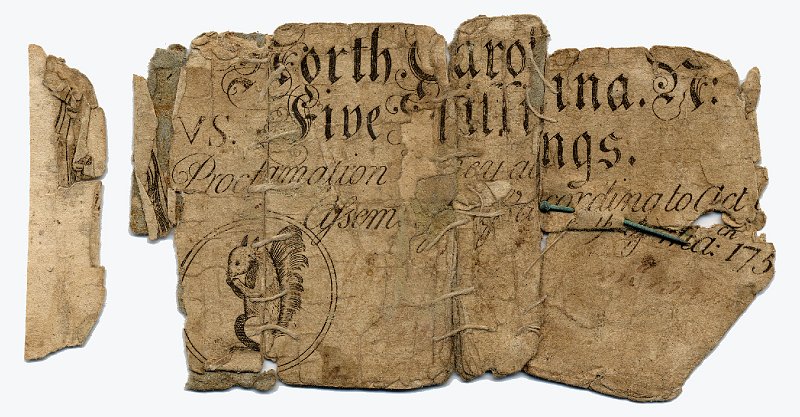 North Carolina. N:
VS. Five Shillings.
Proclamation according to Act
Assem
175